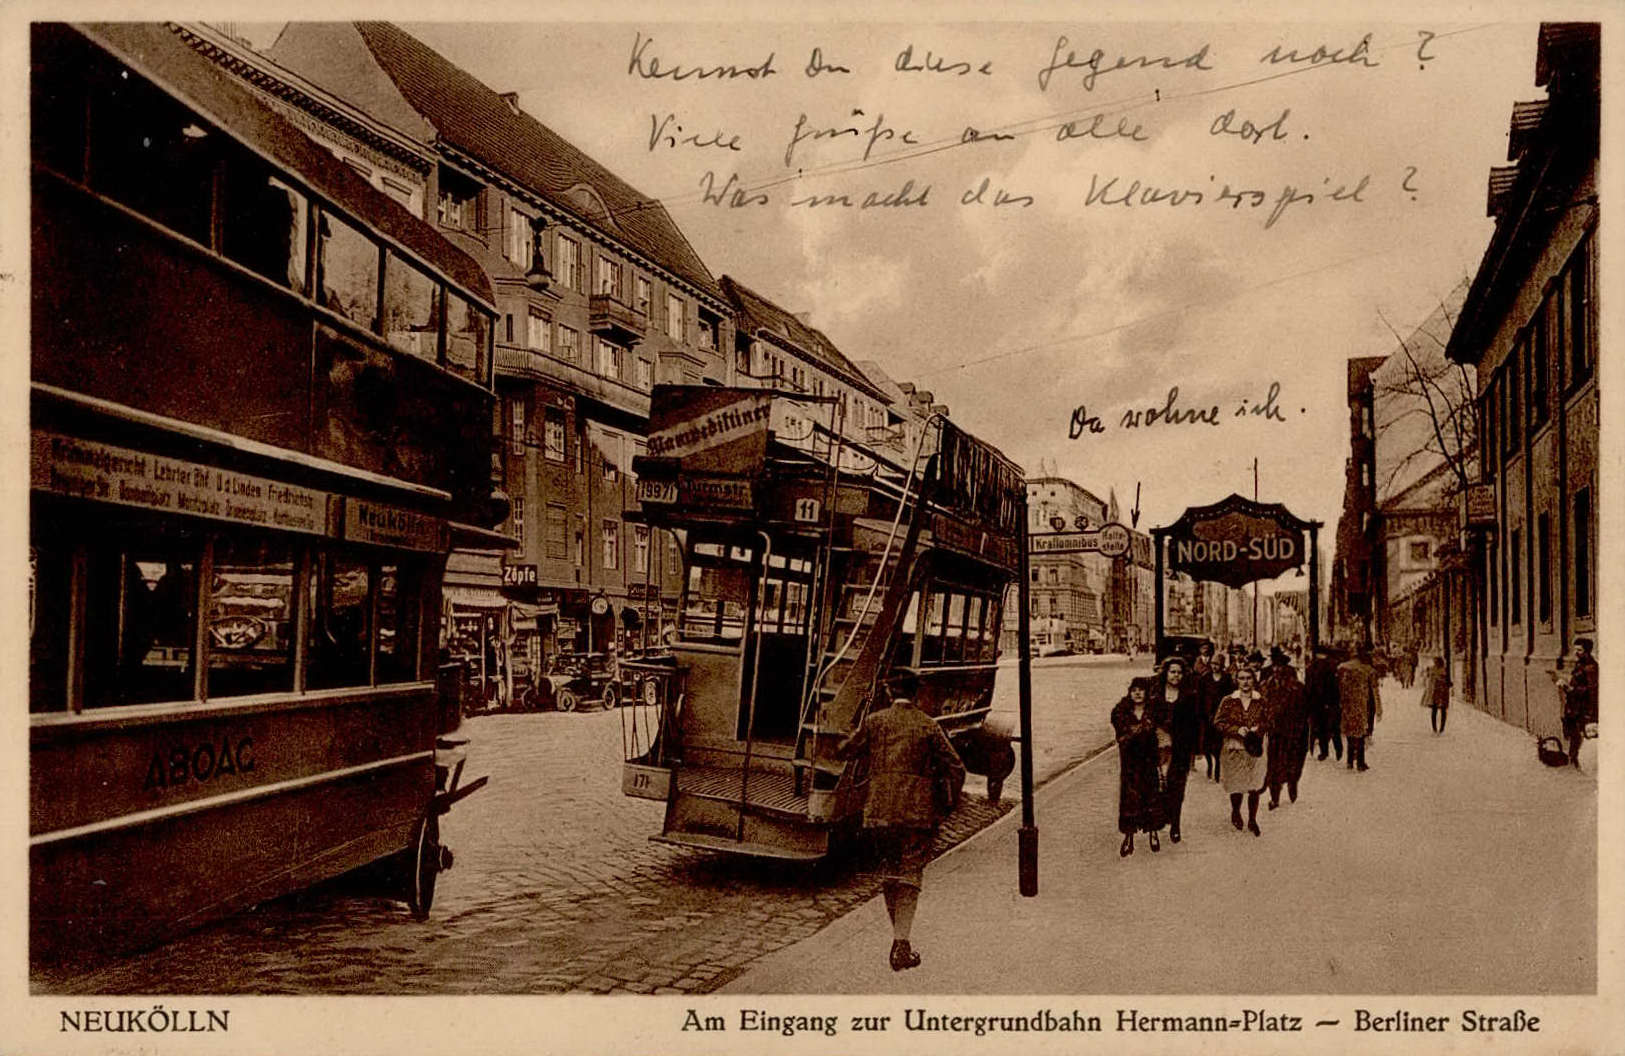 Kennst Du diese Gegend noch?
Viele Grüße an alle dort.
Was macht das Klavierspiel?
Da wohne ich.
Mampedistiner
1997
Turmstr.
11
Kriminalgericht - Lehrter Bhf. U.d. Linden Friedrichstr.
Dönhoffplatz Moritzplatz Oranienplatz
Neukölln
Zöpfe
Kraftomnibus
Halte-
stelle
NORD-SÜD
ABOAG
171
NEUKÖLLN
Am Eingang zur Untergrundbahn Hermann=Platz — Berliner Straße